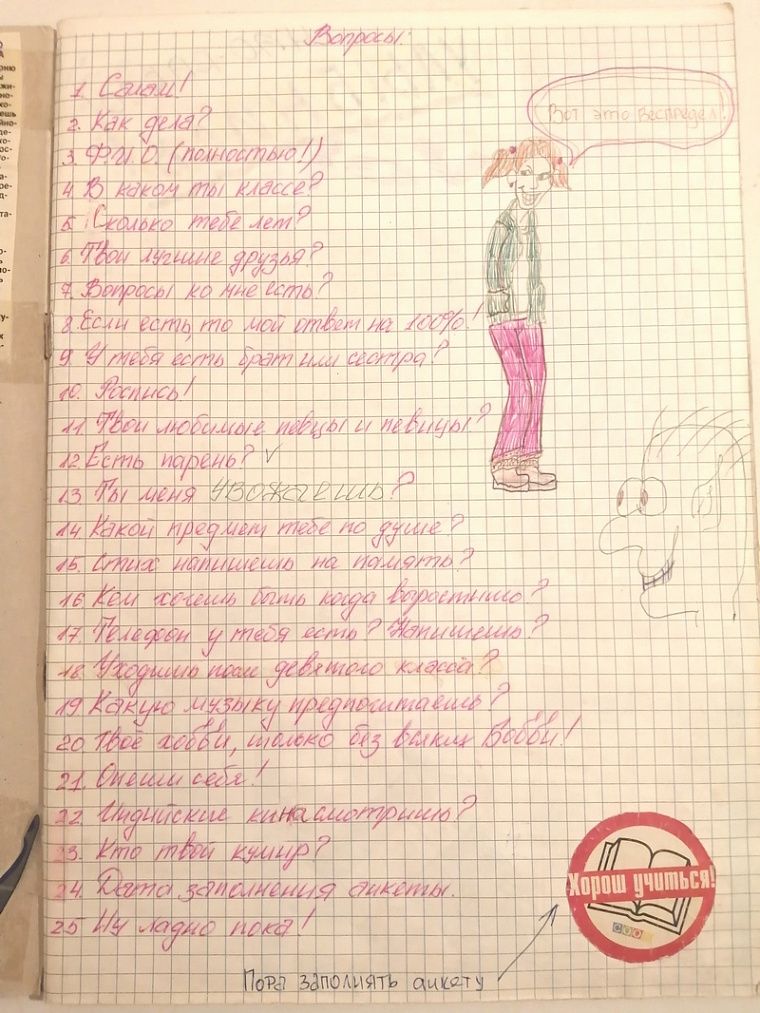 Вопросы:
Вот это беспредел!
1. Салам!
2. Как дела?
3. Ф.И.О. (полностью!)
4. В каком ты классе?
5. Сколько тебе лет?
6. Твои лучшие друзья?
7. Вопросы ко мне есть?
8. Если есть, то мой ответ на 100%!
9. У тебя есть брат или сестра?
10. Роспись!
11. Твои любимые певцы и певицы?
12. Есть парень? ✓
13. Ты меня увожаешь?
14. Какой предмет тебе по душе?
15. Стих напишешь на память?
16. Кем хочешь быть когда
17. Телефон у тебя есть? Напишешь?
18. Уходишь после девятого класса?
19. Какую музыку предпочитаешь?
20. Твоё хобби, только без всяких Бобби!
21. Опеши себя!
22. Индийские кина смотришь?
23. Кто твой кумир?
24. Дата заполнения анкеты.
25. Ну ладно пока!
Хорош учиться!
COOL
Пора заполнять анкету